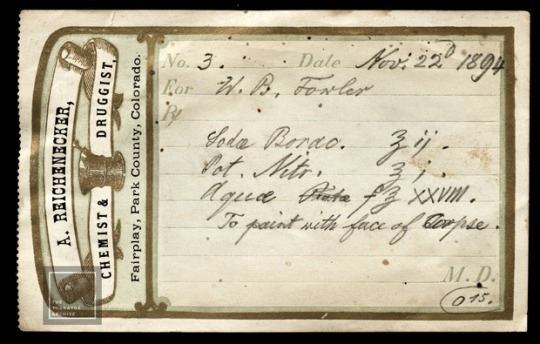 A. REICHENECKER,
CHEMIST & DRUGGIST,
Fairplay, Park County, Colorado.
No. 3. Date Nov. 22d 1894
For W. B. Fowler
R
Soda Borac. ʒ ij.
Pot. Nitr. ʒ j.
Aqua f ʒ XXVIII.
To paint with face of Corpse.
M. D.
015.
THE
THANATOS
ARCHIVE